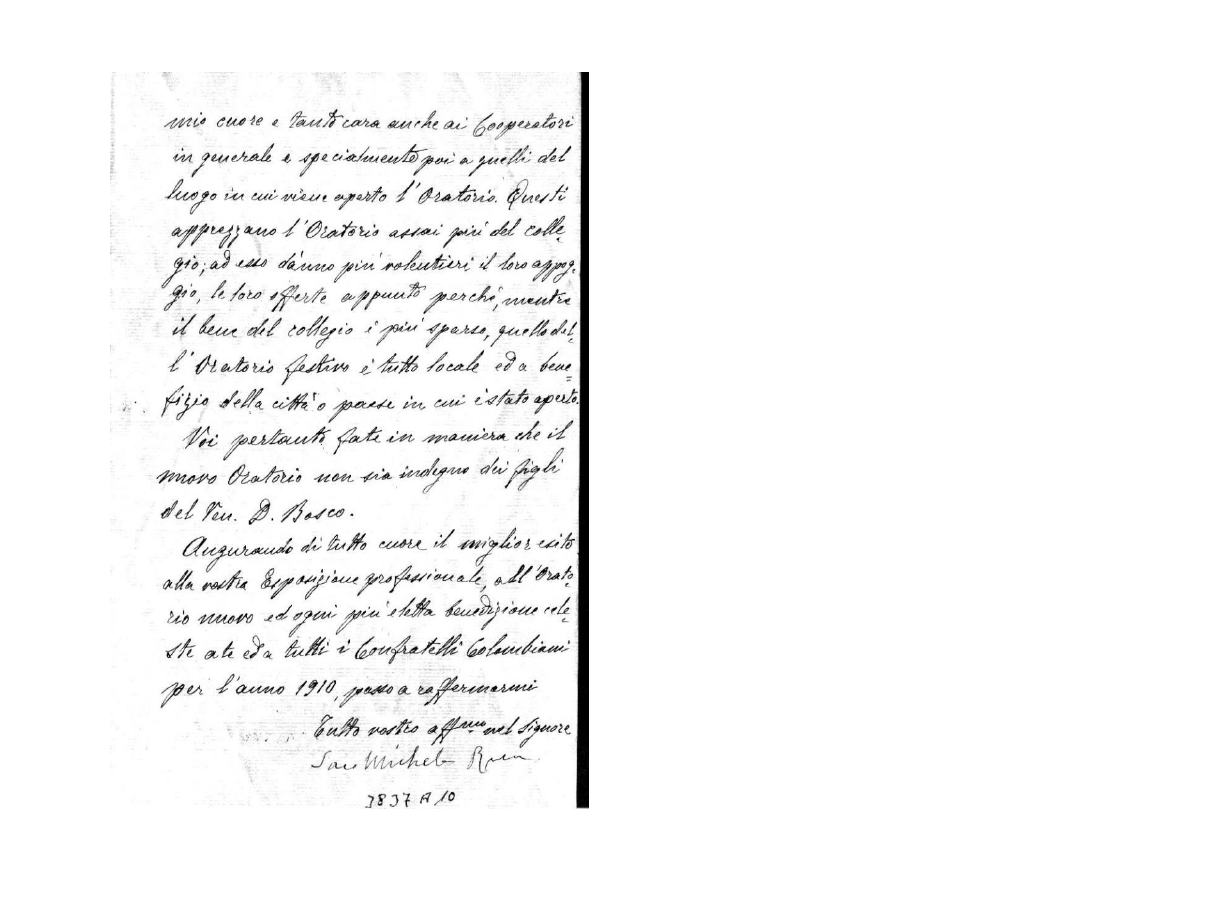 mio cuore e tanto cara anche ai Cooperatori
in generale e specialmente poi a quelli del
luogo in cui viene aperto l'Oratorio. Questi
apprezzano l'Oratorio assai più del colle=
gio; ad esso dànno più volentieri il loro appog=
gio, le loro offerte appunto perché, mentre
il bene del collegio è più sparso, quello del=
l'Oratorio festivo è tutto locale ed a bene=
fizio della città o paese in cui è stato aperto.
Voi pertanto fate in maniera che il
nuovo Oratorio non sia indegno dei figli
del Ven. D. Bosco.
Augurando di tutto cuore il miglior esito
alla vostra Esposizione professionale, all'Orato=
rio nuovo ed ogni più eletta benedizione cele=
ste a te ed a tutti i Confratelli Colombiani
per l'anno 1910, passo a raffermarmi
Tutto vostro aff.mo nel Signore
Sac Michele Rua
3837 A 10